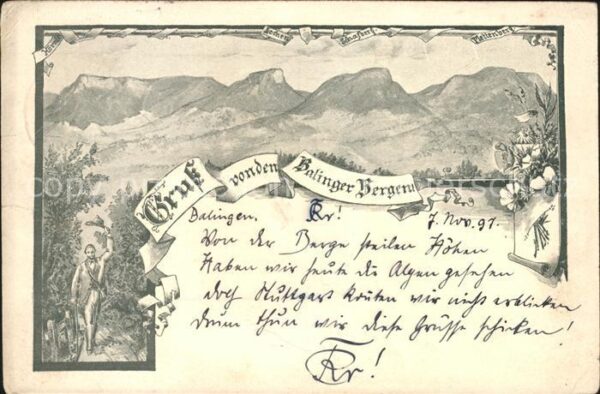 Lochen
Schafberg
Plettenberg
Gruß von den Balinger Bergen
Balingen. Fr! 7. Nov. 97.
Von der Berge steilen Höhen
Haben wir heute die Alpen gesehen
doch Stuttgart konten wir nicht erblicken
drum thun wir diese Grüsse schicken!
Fr!